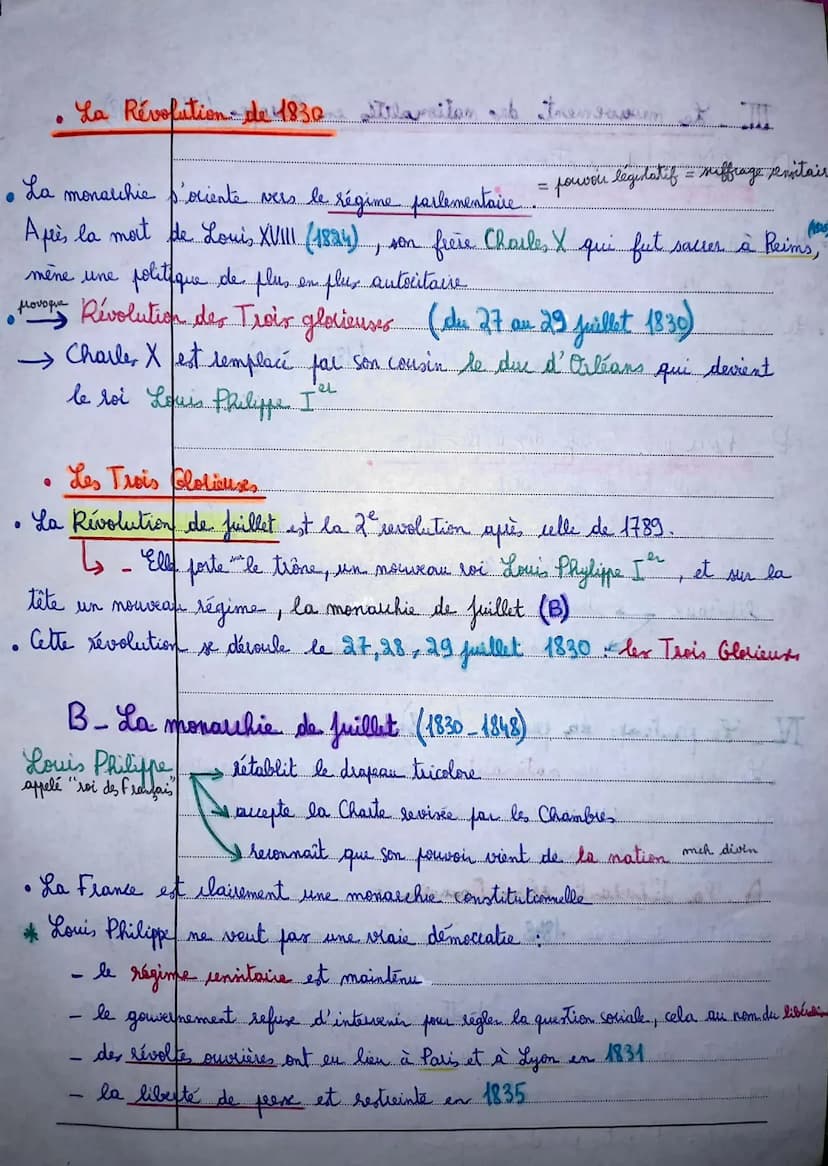 . La Révolution de 1830
= pouvoir législatif = suffrage censitaire
• La monarchie s'oriente vers le régime parlementaire.
Après la mort de Louis XVIII (1824), son frère Charles X qui fut sacrer à Reims,
mène une politique de plus en plus autoritaire
provoque
• → Révolution des Trois glorieuses (du 27 au 29 juillet 1830)
→ Charles X est remplacé par son cousin le duc d'Orléans qui devient
le roi Louis Philippe Ier
• Les Trois Glorieuses
• La Révolution de juillet est la 2e revolution après celle de 1789.
↳ - Elle porte sur le trône, un nouveau roi Louis Phylippe Ier, et sur la
tête un nouveau régime, la monarchie de juillet (B)
• Cette révolution se déroule le 27, 28, 29 juillet 1830 : les Trois Glorieuses
B - La monarchie de juillet (1830 - 1848)
Louis Philippe → rétablit le drapeau tricolore
appelé "roi des Français"
→ accepte la Charte revisée par les Chambres
→ reconnaît que son pouvoir vient de la nation divin
• La France est clairement une monarchie constitutionnelle
* Louis Philippe ne veut pas une vraie démocratie :
- le régime censitaire est maintenu
- le gouvernement refuse d'intervenir pour régler la question sociale, cela au nom du
- des révoltes ouvrières ont eu lieu à Paris et à Lyon en 1831
- la liberté de presse est restreinte en 1835